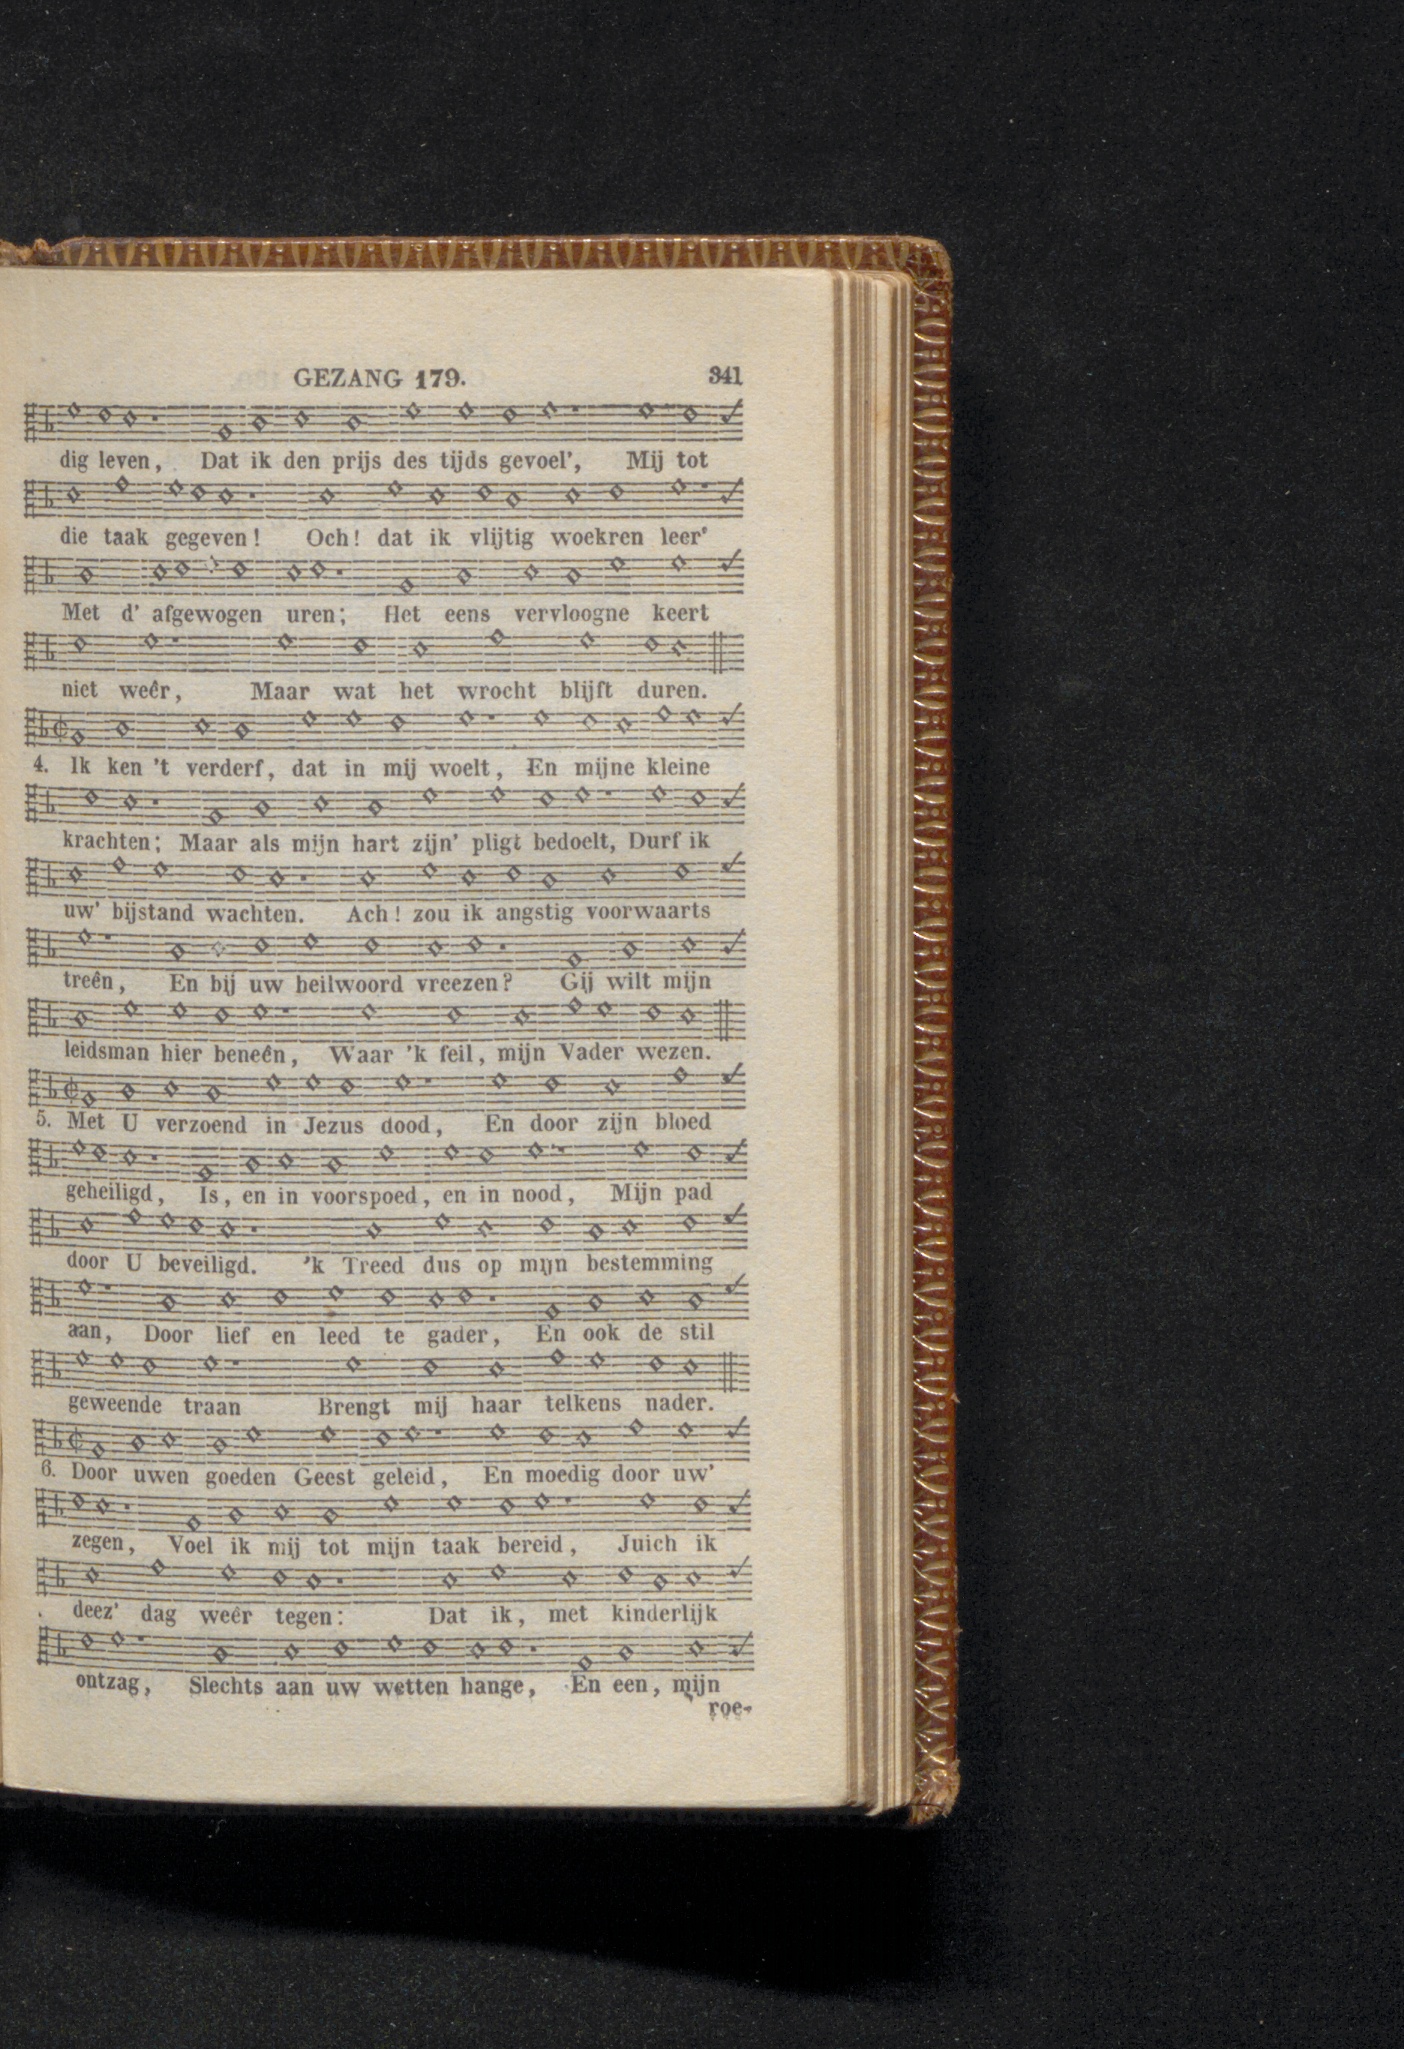 GEZANG 179. 341
dig leven, Dat ik den prijs des tijds gevoel', Mij tot
die taak gegeven! Och! dat ik vlijtig woekren leer'
Met d' afgewogen uren; Het eens vervloogne keert
niet weêr, Maar wat het wrocht blijft duren.
4. Ik ken 't verderf, dat in mij woelt, En mijne kleine
krachten; Maar als mijn hart zijn' pligt bedoelt, Durf ik
uw' bijstand wachten. Ach! zou ik angstig voorwaarts
treên, En bij uw heilwoord vreezen? Gij wilt mijn
leidsman hier beneên, Waar 'k feil, mijn Vader wezen.
5. Met U verzoend in Jezus dood, En door zijn bloed
geheiligd, Is, en in voorspoed, en in nood, Mijn pad
door U beveiligd. 'k Treed dus op mijn bestemming
aan, Door lief en leed te gader, En ook de stil
geweende traan Brengt mij haar telkens nader.
6. Door uwen goeden Geest geleid, En moedig door uw'
zegen, Voel ik mij tot mijn taak bereid, Juich ik
deez' dag weêr tegen: Dat ik, met kinderlijk
ontzag, Slechts aan uw wetten hange, En een, mijn
roe-